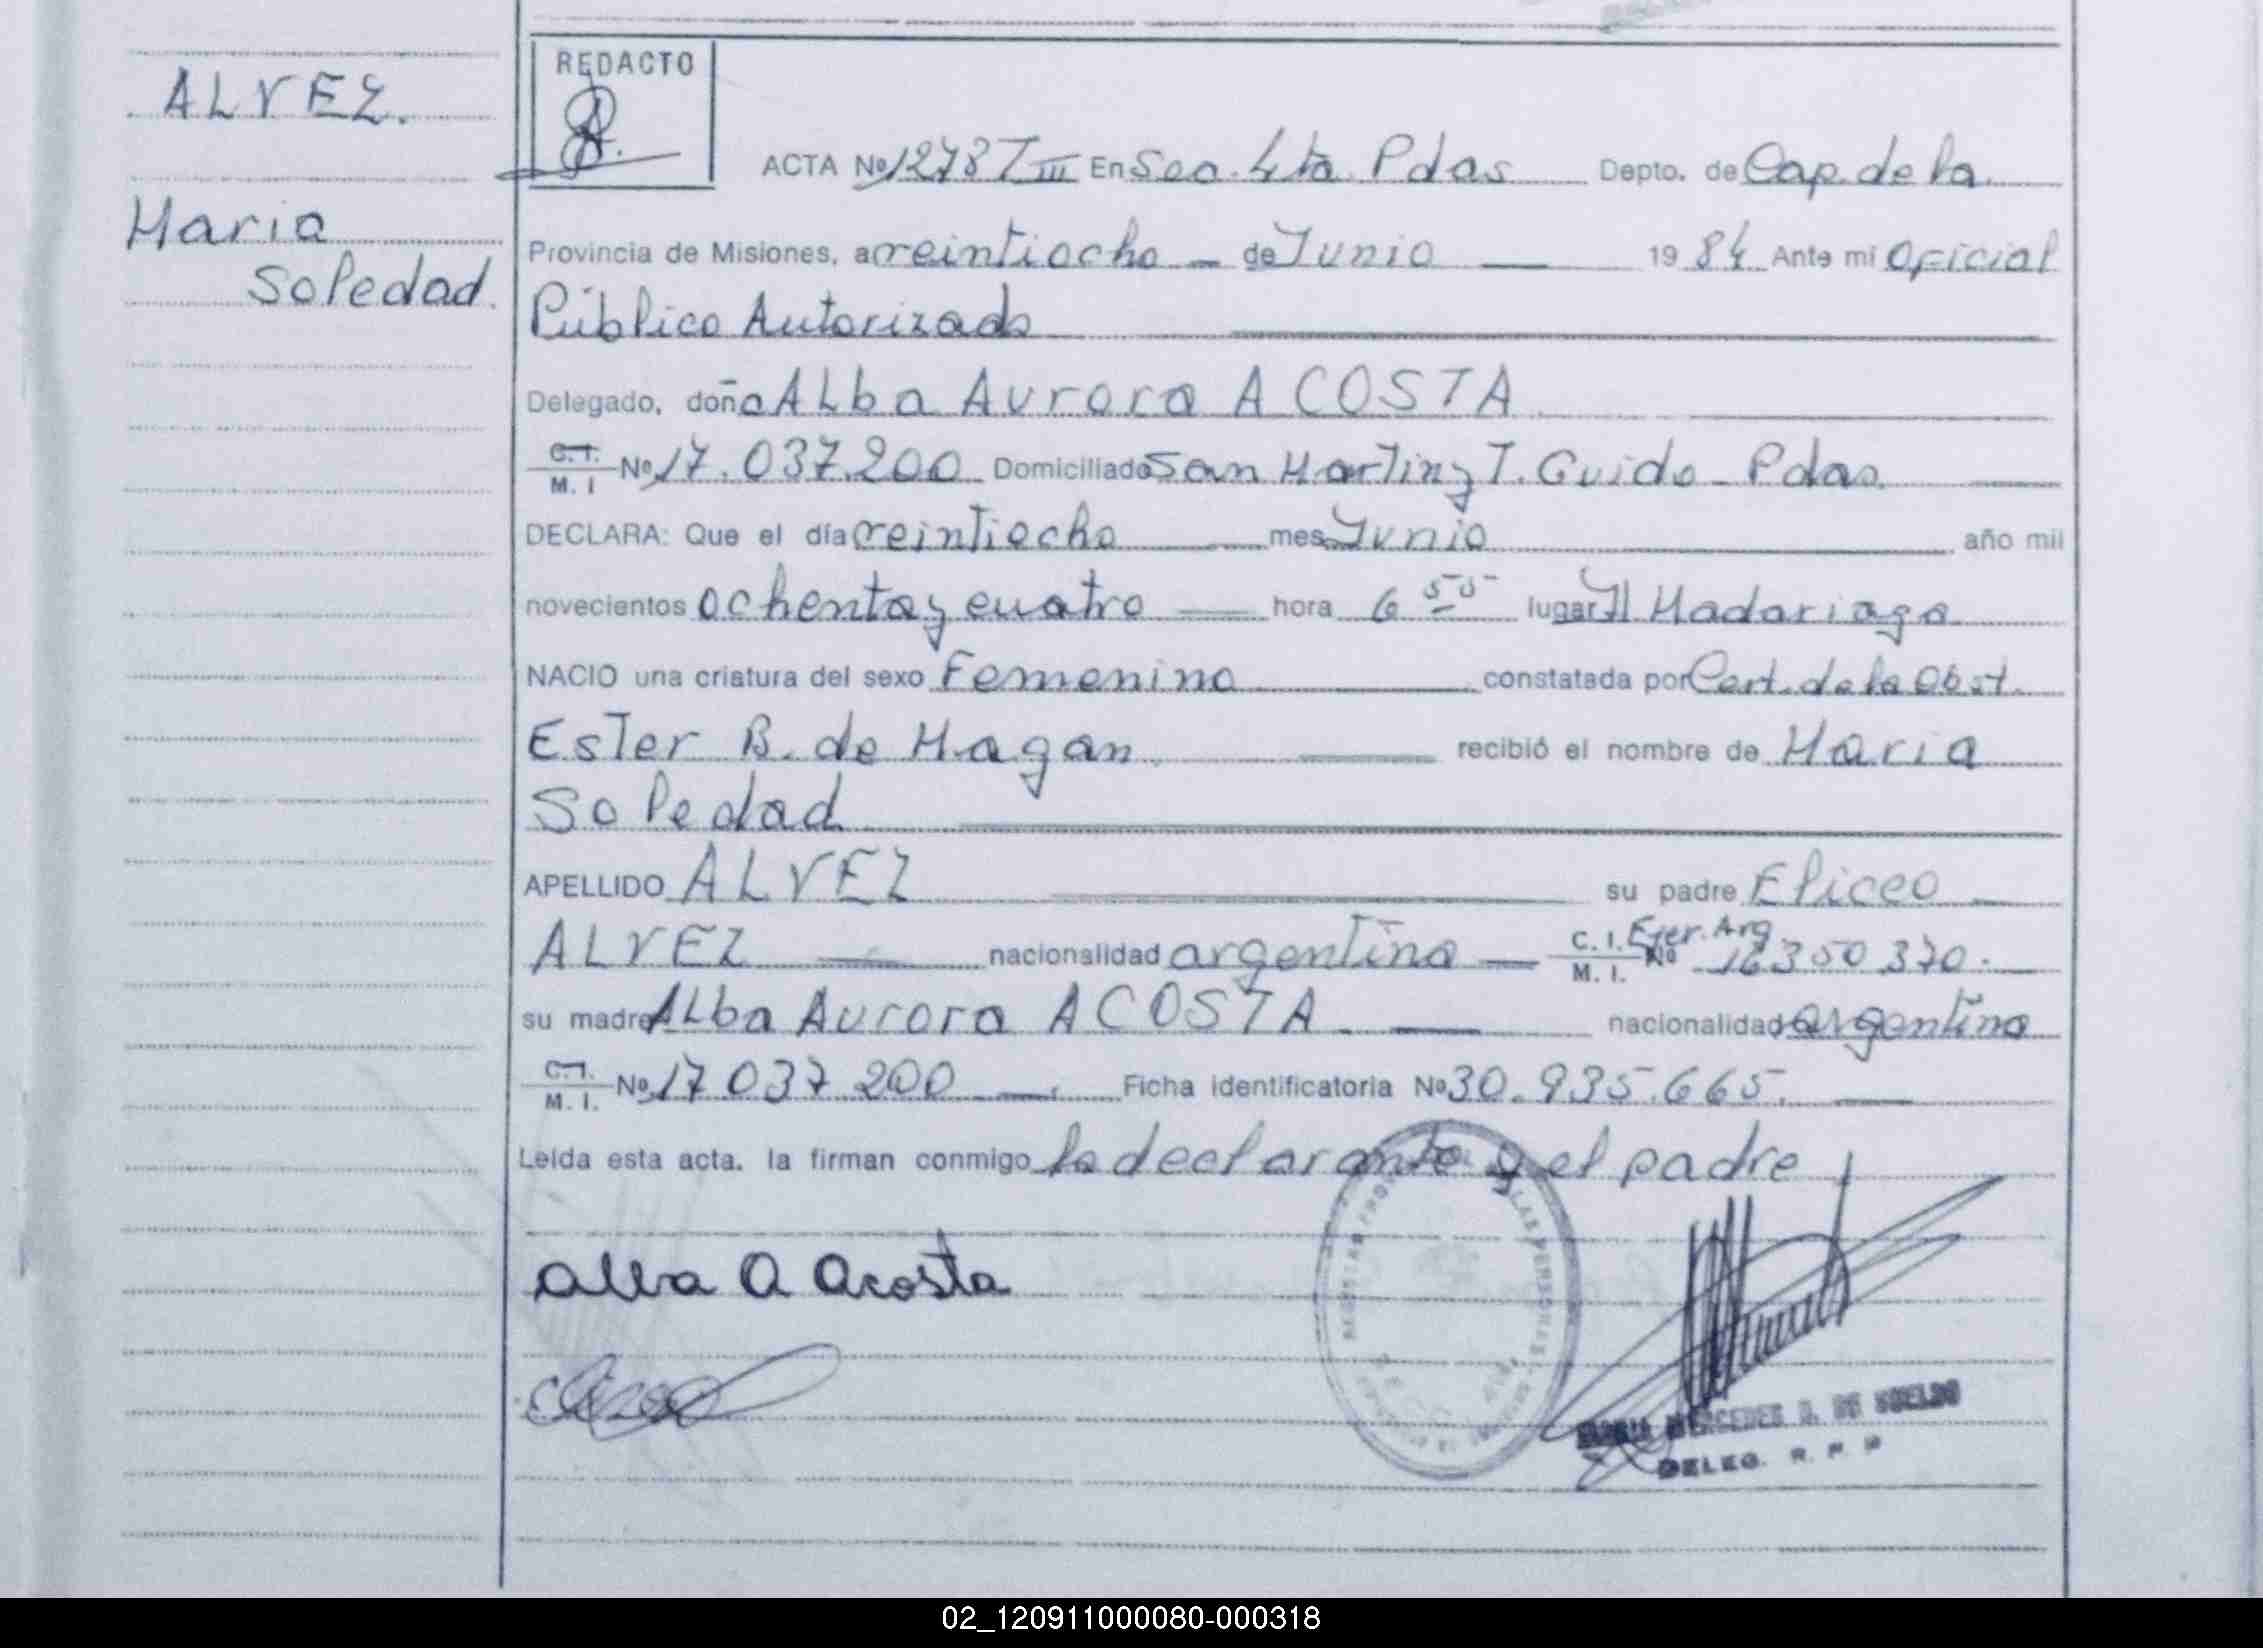 ALVEZ.
Maria
Soledad.
REDACTO
ACTA Nº 1278 T III En Sec. 4ta. Pdas Depto. de Cap. de la
Provincia de Misiones, a veintiocho - de Junio — 19 84 Ante mi Oficial
Público Autorizado
Delegado, doña Alba Aurora ACOSTA
C.I. M. I Nº 17.037.200 Domiciliado San Martin y T. Guido - Pdas.
DECLARA: Que el día veintiocho — mes Junio año mil
novecientos ochenta y cuatro — hora 6 55 lugar H Madariaga
NACIO una criatura del sexo Femenino constatada por Cert. de la Obst.
Ester B. de Magan. recibió el nombre de Maria
Soledad
APELLIDO ALVEZ su padre Eliceo
ALVEZ — nacionalidad argentina — C. I. M. I. Nº Ejer. Arg 16350370.
su madre Alba Aurora ACOSTA. — nacionalidad argentina
C.I. M. I. Nº 17 037 200 — Ficha identificatoria Nº 30.935.665. —
Leida esta acta, la firman conmigo la declarante y el padre
Alba A Acosta
REGISTRO PROV. LAS PERSONAS
MARIA MERCEDES D. DE SUELDO
DELEG. R. P. P
02_120911000080-000318